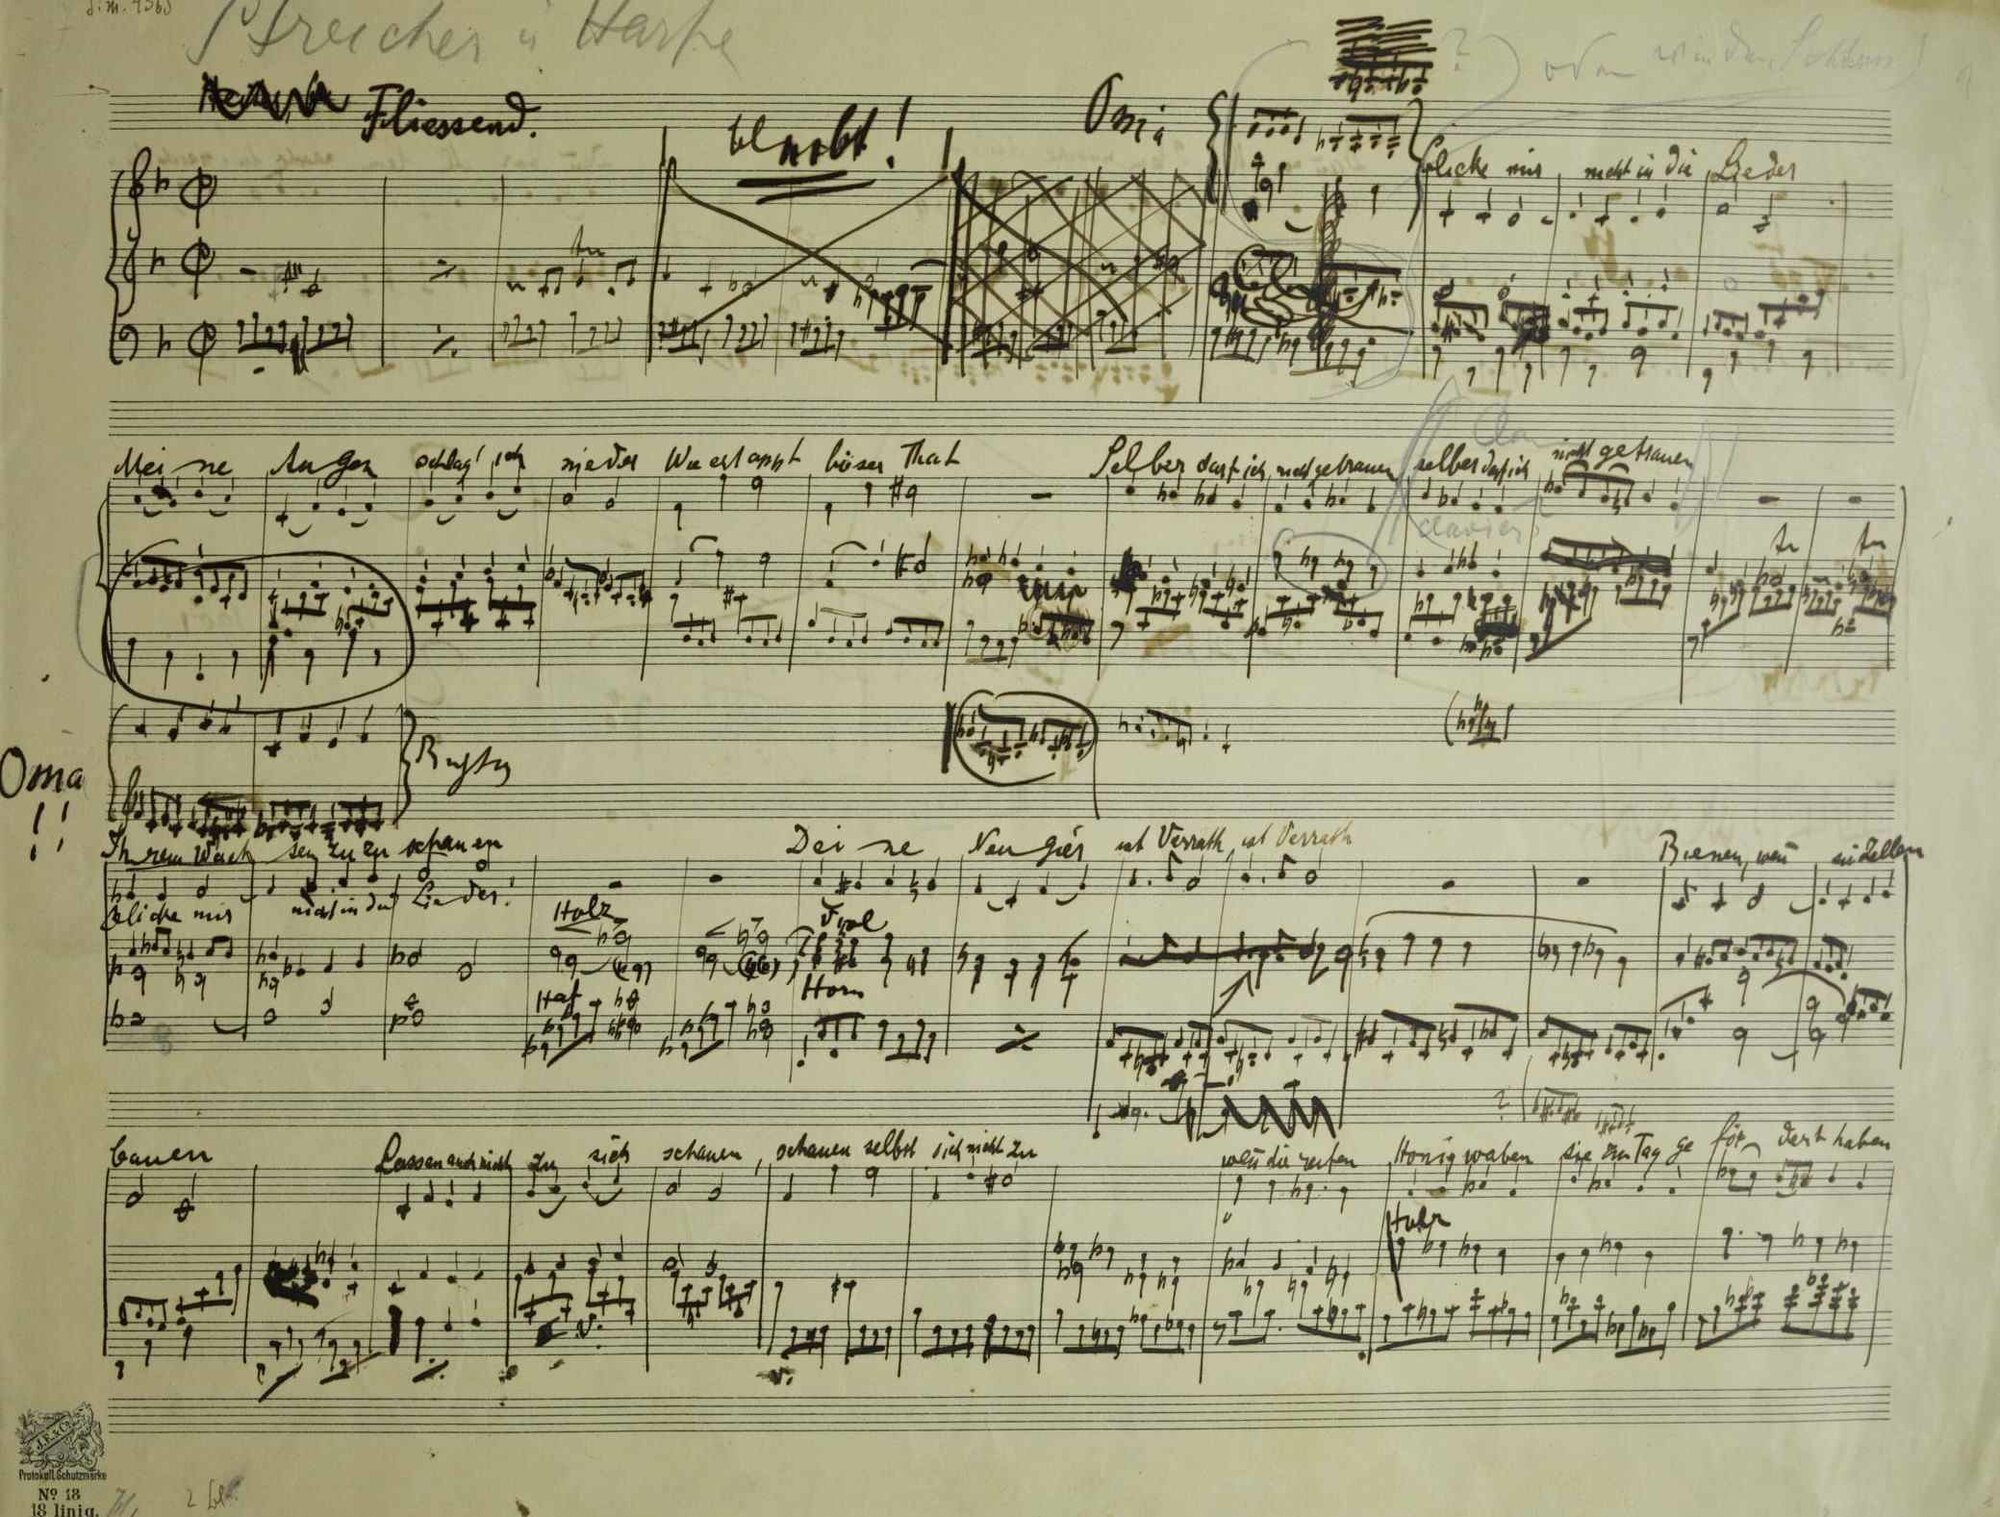 Streicher u Harfe
Fliessend.
bleibt!
oder
Blicke mir nicht in die Lieder
Meine Augen schlag' ich nieder Wie ertappt böser That
Selber darf ich nicht getrauen selber darf ich nicht getrauen
clavier
Oma
!!
Ihrem Wachsen zuzuschauen
Deine Neugier ist Verrath, ist Verrath
Bienen, wen sie Zellen
Blicke mir nicht in die Lieder!
Holz
Viol
Harf
Horn
?
bauen
Lassen auch nicht zu sich schauen, schauen selbst sich nicht zu
wen die reifen Honigwaben sie zu Tag gefördert haben
Holz
J.E. & Co.
Protokoll. Schutzmarke
No 18
18 linig.